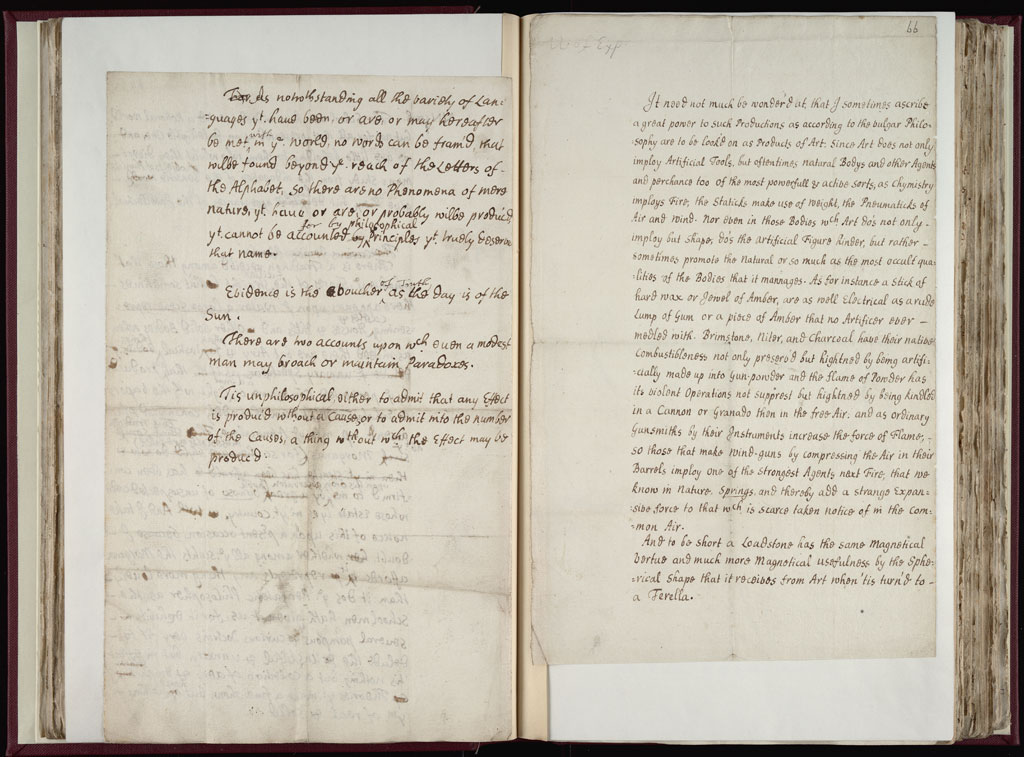 As notwthstanding all the variety of Lan-
-guages yt. have been, or are, or may hereafter
be met with in ye. world, no word can be fram'd, that
wilbe found beyond ye. reach of the Letters of-
the Alphabet, so there are no Phenomena of mere
nature, yt. have or are, or probably wilbe produc'd
yt. cannot be accounted for by philosophical Principles yt. truely deserve
that name.
Evidence is the voucher of Truth, as the Day is of the
Sun.
There are two accounts upon wch even a modest
man may broach or maintain Paradoxes.
Tis unphilosophical either to admit that any Effect
is produc'd without a Cause, or to admit into the number
of the Causes, a thing wthout wch the Effect may be
produc'd
66
It need not much be wonder'd at, that I sometimes ascribe
a great power to such Productions as according to the vulgar Philo-
sophy are to be look'd on as Products of Art. Since Art does not only
imploy Artificial Tools, but oftentimes natural Bodys and other Agents
and perchance too of the most powerfull & active sorts, as Chymistry
imploys Fire, the Staticks make use of weight, the Pneumaticks of
Air and Wind. Nor even in those Bodies wch Art do's not only-
imploy but shape, do's the artificial Figure hinder, but rather-
sometimes promote the Natural or so much as the most occult qua-
-lities of the Bodies that it mannages. As for instance a Stick of
hard wax or Jewel of Amber, are as well Electrical as a rude
Lump of Gum or a piece of Amber that no Artificer ever-
medled with. Brimstone, Niter, and Charcoal have their native
Combustibleness not only preserv'd but hightned by being artifi-
-cially made up into Gun-powder and the Flame of Powder has
its violent Operations not supprest but hightned by being kindled
in a Cannon or Granado then in the free Air: and as ordinary
Gunsmiths by their Instruments increase the force of Flame,-
so those that make wind-guns by compressing the Air in their
Barrels imploy one of the strongest Agents next Fire, that we
know in Nature, Springs, and thereby add a strange Expan-
sive force to that wch is scarce taken notice of in the Com-
-mon Air.
And to be short a Loadstone has the same Magnetical
Vertue and much more Magnetical usefulness by the Sphe-
-rical shape that it receives from Art when 'tis turn'd to-
a Terella.